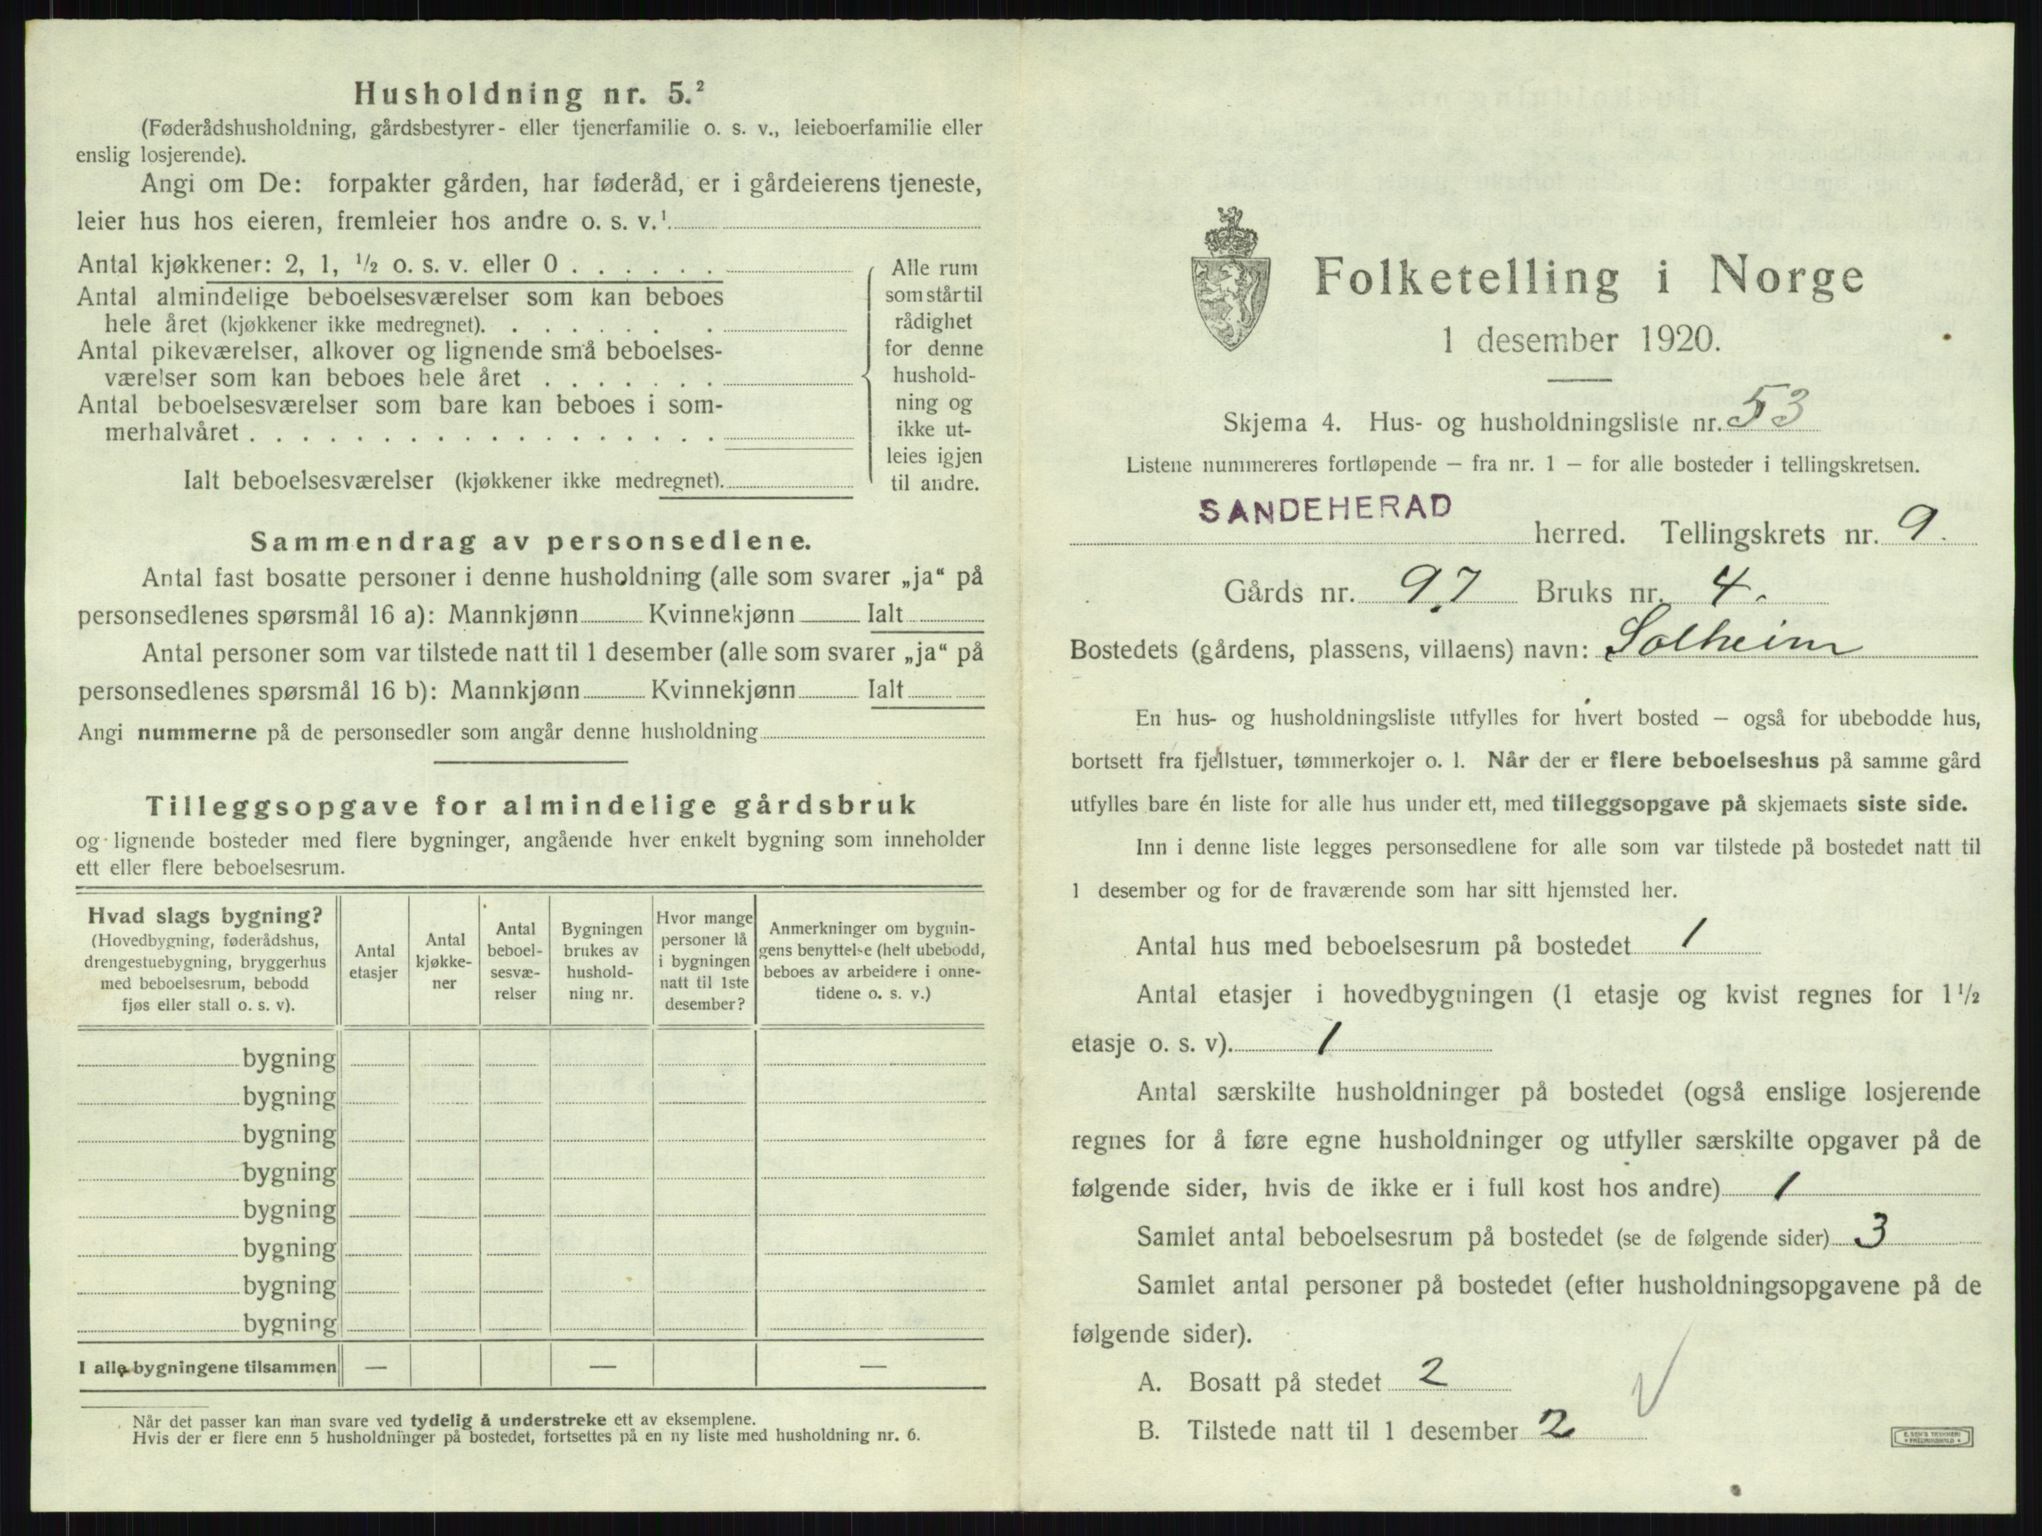 Husholdning nr. 5.²
(Føderådshusholdning, gårdsbestyrer- eller tjenerfamilie o. s. v., leieboerfamilie eller
enslig losjerende).
Angi om De: forpakter gården, har føderåd, er i gårdeierens tjeneste,
leier hus hos eieren, fremleier hos andre o. s. v.¹
Antal kjøkkener: 2, 1, ½ o. s. v. eller 0 . . . . . .
Antal almindelige beboelsesværelser som kan beboes
hele året (kjøkkener ikke medregnet). . . . . . . .
Antal pikeværelser, alkover og lignende små beboelses-
værelser som kan beboes hele året . . . . . . .
Antal beboelsesværelser som bare kan beboes i som-
merhalvåret . . . . . . . . . . . . . . . . . .
Ialt beboelsesværelser (kjøkkener ikke medregnet).
Alle rum
som står til
rådighet
for denne
hushold-
ning og
ikke ut-
leies igjen
til andre.
Sammendrag av personsedlene.
Antal fast bosatte personer i denne husholdning (alle som svarer „ja“ på
personsedlenes spørsmål 16 a): Mannkjønn Kvinnekjønn Ialt
Antal personer som var tilstede natt til 1 desember (alle som svarer „ja“ på
personsedlenes spørsmål 16 b): Mannkjønn Kvinnekjønn Ialt
Angi nummerne på de personsedler som angår denne husholdning
Tilleggsopgave for almindelige gårdsbruk
og lignende bosteder med flere bygninger, angående hver enkelt bygning som inneholder
ett eller flere beboelsesrum.
Hvad slags bygning?
(Hovedbygning, føderådshus,
drengestuebygning, bryggerhus
med beboelsesrum, bebodd
fjøs eller stall o. s. v).
Antal
etasjer
Antal
kjøkke-
ner
Antal
beboel-
sesvæ-
relser
Bygningen
brukes av
hushold-
ning nr.
Hvor mange
personer lå
i bygningen
natt til 1ste
desember?
Anmerkninger om bygnin-
gens benyttelse (helt ubebodd,
beboes av arbeidere i onne-
tidene o. s. v.)
bygning
bygning
bygning
bygning
bygning
bygning
bygning
bygning
I alle bygningene tilsammen — — —
Når det passer kan man svare ved tydelig å understreke ett av eksemplene.
Hvis der er flere enn 5 husholdninger på bostedet, fortsettes på en ny liste med husholdning nr. 6.
Folketelling i Norge
1 desember 1920.
Skjema 4. Hus- og husholdningsliste nr. 53
Listene nummereres fortløpende – fra nr. 1 – for alle bosteder i tellingskretsen.
SANDEHERAD herred. Tellingskrets nr. 9.
Gårds nr. 97 Bruks nr. 4.
Bostedets (gårdens, plassens, villaens) navn: Solheim
En hus- og husholdningsliste utfylles for hvert bosted – også for ubebodde hus,
bortsett fra fjellstuer, tømmerkojer o. l. Når der er flere beboelseshus på samme gård
utfylles bare én liste for alle hus under ett, med tilleggsopgave på skjemaets siste side.
Inn i denne liste legges personsedlene for alle som var tilstede på bostedet natt til
1 desember og for de fraværende som har sitt hjemsted her.
Antal hus med beboelsesrum på bostedet 1
Antal etasjer i hovedbygningen (1 etasje og kvist regnes for 1½
etasje o. s. v). 1
Antal særskilte husholdninger på bostedet (også enslige losjerende
regnes for å føre egne husholdninger og utfyller særskilte opgaver på de
følgende sider, hvis de ikke er i full kost hos andre) 1
Samlet antal beboelsesrum på bostedet (se de følgende sider) 3
Samlet antal personer på bostedet (efter husholdningsopgavene på de
følgende sider).
A. Bosatt på stedet 2
B. Tilstede natt til 1 desember 2